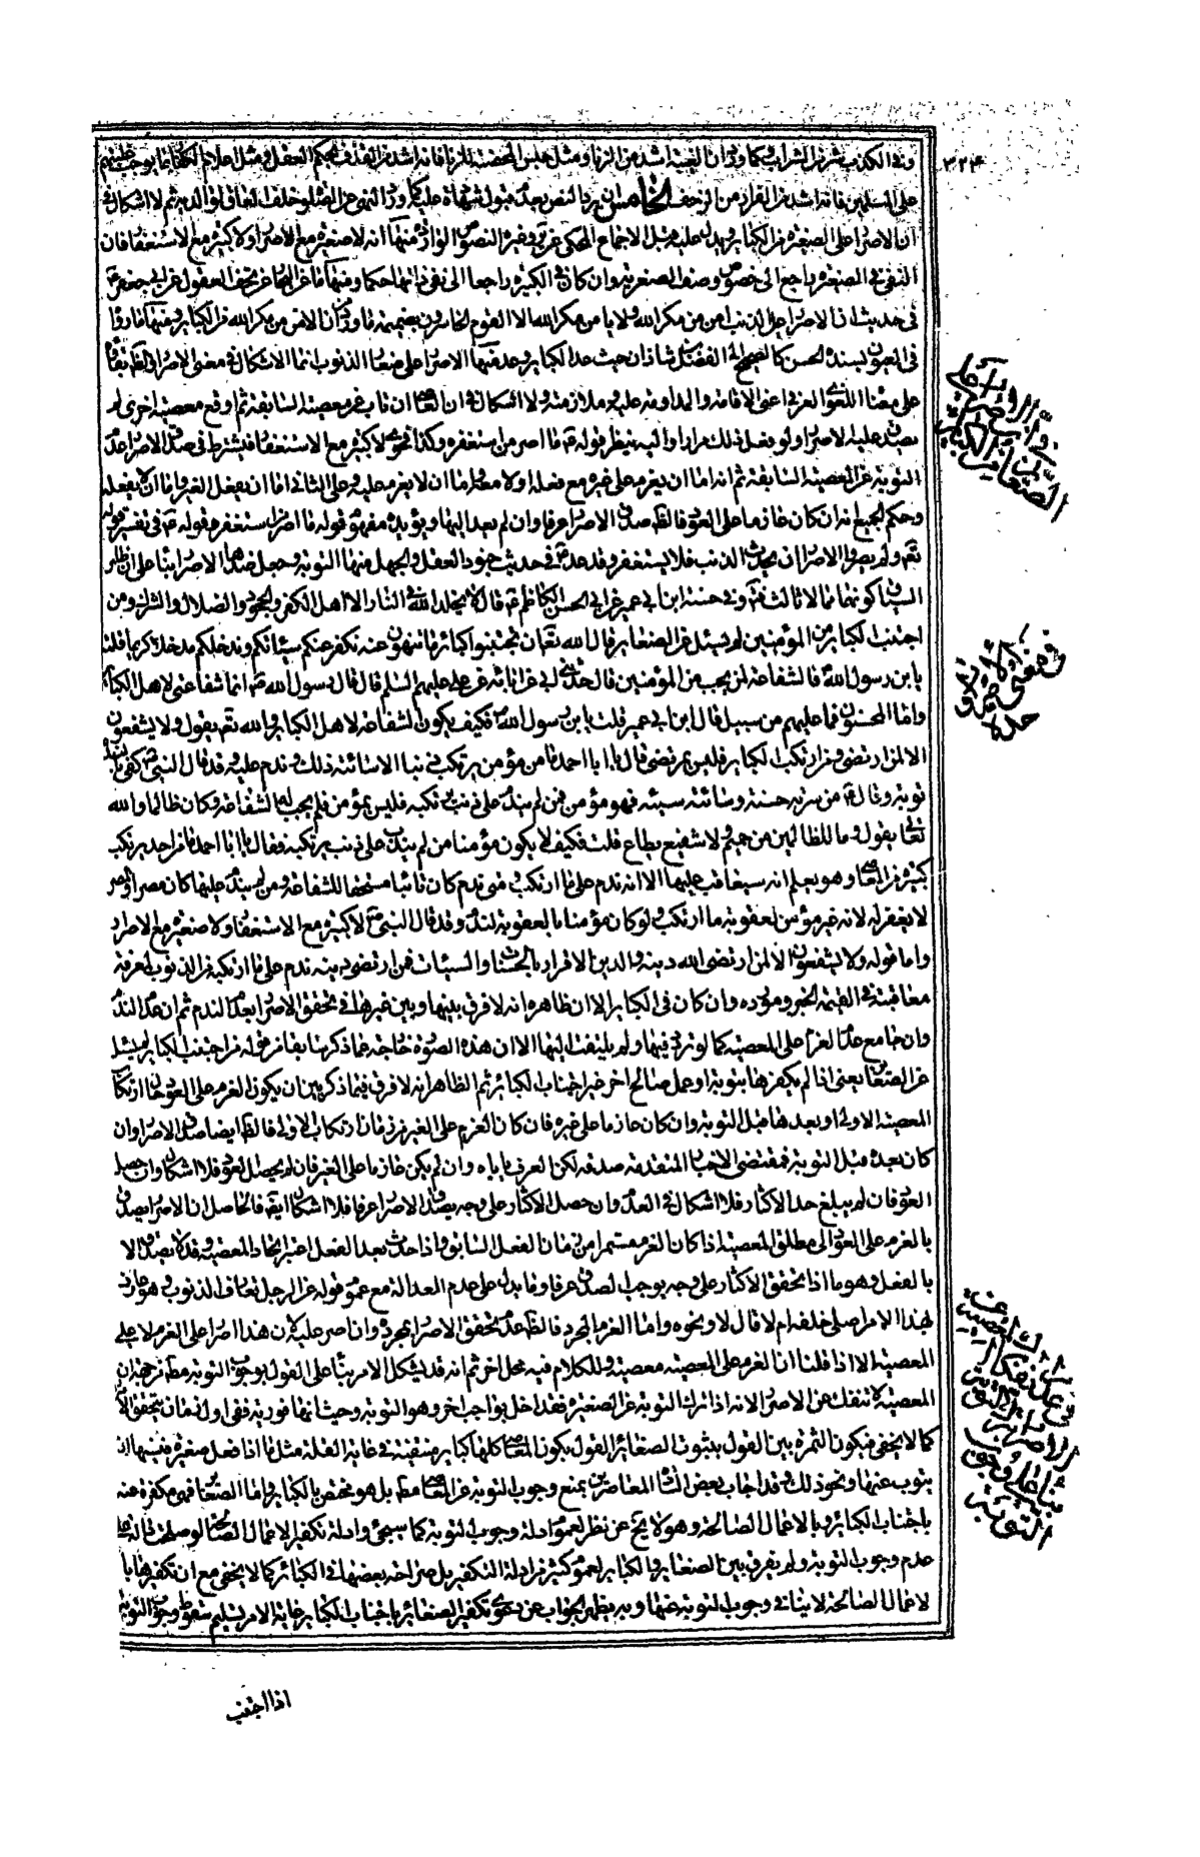 وفي الكذب شر من الشراب كما ورد ان الغيبة اشد من الزنا ومثل حبس المحصنة للزنا فانه اشد من القذف بحكم العقل ومثل اعلام الكفار بما يوجب غلبتهم
٣٣۴
على المسلمين فانه اشد من الفرار من الزحف الخامس ان يرد النص بعدم قبول شهادة عليه كما ورد النهي عن الصلوة خلف العاق لوالديه ثم لا اشكال في
ان الاصرار على الصغيرة من الكبائر ويدل عليه قبل الاجماع المحكي عن ير وغيره النصوص الواردة منها انه لا صغيرة مع الاصرار ولا كبيرة مع الاستغفار فان
النفي في الصغيرة راجع الى خصوص وصف الصغرية وان كان في الكبيرة راجعا الى نفي ذاتها حكما ومنها ما عن البحار عن تحف العقول عن ابي جعفر ع
في حديث ان الاصرار على الذنب امن من مكر الله ولا يامن مكر الله الا القوم الخاسرون بضميمة ما ورد ان الامن من مكر الله من الكبائر ومنها ما رواه
في العيون بسنده الحسن كالصحيح الى الفضل بن شاذان حيث عد الكبائر وعد منها الاصرار على صغار الذنوب انما الاشكال في معنى الاصرار والظ بقائه
على معناه اللغوي العرفي اعني الاقامة والمداومة عليه وملازمته ولا اشكال في ان العاصي ان تاب عن معصيته السابقة ثم اوقع معصية اخرى لم
يصدق عليه الاصرار ولو فعل ذلك مرارا واليه ينظر قوله ع ما اصر من استغفر وكذا قوله لا كبيرة مع الاستغفار فيشترط في صدق الاصرار عدم
التوبة عن المعصية السابقة ثم انه اما ان يعزم على غيره مع فعله او لا معه واما ان لا يعزم عليه وعلى الثاني اما ان يفعل الغير واما ان لا يفعله
وحكم الجميع انه ان كان عازما على العود فالظ صدق الاصرار عرفا وان لم يعد اليها ويؤيده مفهوم قوله ما اصر من استغفر وقوله ع في تفسير قوله
تع ولم يصروا الاصرار ان يحدث الذنب فلا يستغفر وقد عد ع في حديث جنود العقل والجهل منها التوبة وجعل ضدها الاصرار بناء على ان ظاهر
السياق كونهما مما لا ثالث لهما وفي حسنة ابن ابي عمير عن ابي الحسن الكاظم ع قال لا يخلد الله في النار الا اهل الكفر والجحود والضلال والشرك ومن
اجتنب الكبائر من المؤمنين لم يسئل عن الصغاير قال الله تعالى ان تجتنبوا كبائر ما تنهون عنه نكفر عنكم سيئاتكم وندخلكم مدخلا كريما قلت
يا بن رسول الله ص فالشفاعة لمن يجب من المؤمنين قال حدثني ابي عن ابائه عن علي عليهم السلم قال قال رسول الله ص انما شفاعتي لاهل الكبائر
واما المحسنون فما عليهم من سبيل قال ابن ابي عمير قلت يا بن رسول الله ص فكيف يكون الشفاعة لاهل الكبائر والله تع يقول ولا يشفعون
الا لمن ارتضى ومن ارتكب الكبائر فليس بمرتضى قال يا ابا احمد ما من مؤمن يرتكب ذنبا الا سائته ذلك وندم عليه وقد قال النبي ص كفى بالندم
توبة وقال ع من سرته حسنة وسائته سيئة فهو مؤمن فمن لم يندم على ذنب يرتكبه فليس بمؤمن فلم يجب له الشفاعة وكان ظالما والله
تعالى يقول وما للظالمين من حميم ولا شفيع يطاع قلت فكيف لا يكون مؤمنا من لم يندم على ذنب يرتكبه فقال يا ابا احمد ما من احد يرتكب
كبيرة من المعاصي وهو يعلم انه سيعاقب عليها الا انه ندم على ما ارتكب ومتى ندم كان تائبا مستحقا للشفاعة ومن لم يندم عليها كان مصرا والمصر
لا يغفر له لانه غير مؤمن لعقوبة ما ارتكب ولو كان مؤمنا بالعقوبة لندم وقد قال النبي ص لا كبيرة مع الاستغفار ولا صغيرة مع الاصرار
واما قوله ولا يشفعون الا لمن ارتضى الله دينه والدين الاقرار بالحسنات والسيئات فمن ارتضى دينه ندم على ما ارتكبه من الذنوب لمعرفته
معاقبته في القيمة الخبر ومورده وان كان في الكبائر الا ان ظاهره انه لا فرق بينها وبين غيرها في تحقق الاصرار بعدم الندم ثم ان عدم الندم
وان جامع عدم العزم على المعصية كما لو تردد فيها ولم يلتفت اليها الا ان هذه الصورة خارجة عما ذكرنا بقاؤه قوله من اجتنب الكبائر لم يسئل
عن الصغاير يعني اذا لم يكفرها بتوبة او عمل صالح اخر غير اجتناب الكبائر ثم الظاهر انه لا فرق فيما ذكر بين ان يكون العزم على العود حال ارتكاب
المعصية الاولى او بعدها قبل التوبة وان كان عازما على غيره فان كان العزم على الغير من زمان ارتكاب الاولى فالظ ايضا صدق الاصرار وان
كان بعده قبل التوبة فمقتضى الاخبار المتقدمة صدقه لكن العرف ياباه وان لم يكن عازما على الغير فان لم يحصل العود فلا اشكال وان حصل
العود فان لم يبلغ حد الاكثار فلا اشكال في العدم وان حصل الاكثار على وجه يصدق الاصرار عرفا فلا اشكال ايضا فالحاصل ان الاصرار يصدق
بالعزم على العود الى مطلق المعصية اذا كان العزم مستمرا من زمان الفعل السابق واذا حدث بعد الفعل اعتبر اتحاد المعصية وقد لا يصدق الا
بالفعل وهو ما اذا تحقق الاكثار على وجه يوجب الصدق عرفا وما يدل على عدم العدالة مع عموم قوله عن الرجل تعارف الذنوب وهو عارف
بهذا الامر اصلي خلفه ام لا قال لا ونحوه واما العزم المجرد فالظ عدم تحقق الاصرار بمجرده وان اصر عليه لان هذا اصرار على العزم لا على
المعصية الا اذا قلنا ان العزم على المعصية معصية وللكلام فيه محل اخر ثم انه قد يشكل الامر بناء على القول بوجوب التوبة مط من جهة ان
المعصية لا تنفك عن الاصرار لانه اذا ترك التوبة عن الصغيرة فقد اخل بواجب اخر وهو التوبة وحيث انها فورية ففي اول زمان يتحقق الاصرار
كما لا يخفى فيكون الثمرة بين القول بثبوت الصغائر والقول بكون المعاصي كلها كبائر منتفية في غاية القلة مثل ما اذا فعل صغيرة فنسيها ان
يتوب عنها ونحو ذلك وقد اجاب بعض السادة المعاصرين بمنع وجوب التوبة عن المعاصي مط بل هو مختص بالكبائر واما الصغائر فهي مكفرة عنه
باجتناب الكبائر وبالاعمال الصالحة وهو لا يخ عن نظر لعموم ادلة وجوب التوبة كما سيجئ وادلة تكفير الاعمال الصالحة لو صلحت دالة على
عدم وجوب التوبة ولم يفرق بين الصغاير والكبائر لعموم كثير من ادلة التكفير بل صراحة بعضها في الكبائر كما لا يخفى مع ان تكفيرها با
لاعمال الصالحة لا ينافي وجوب التوبة عنها وبه يظهر الجواب عن دعوى تكفير الصغائر باجتناب الكبائر غاية الامر تسليم سقوط وجوب التوبة
اذا اجتنب
في ان الاصرار على
الصغائر من الكبائر
في معنى الاصرار
بناء على وجوب
التوبة